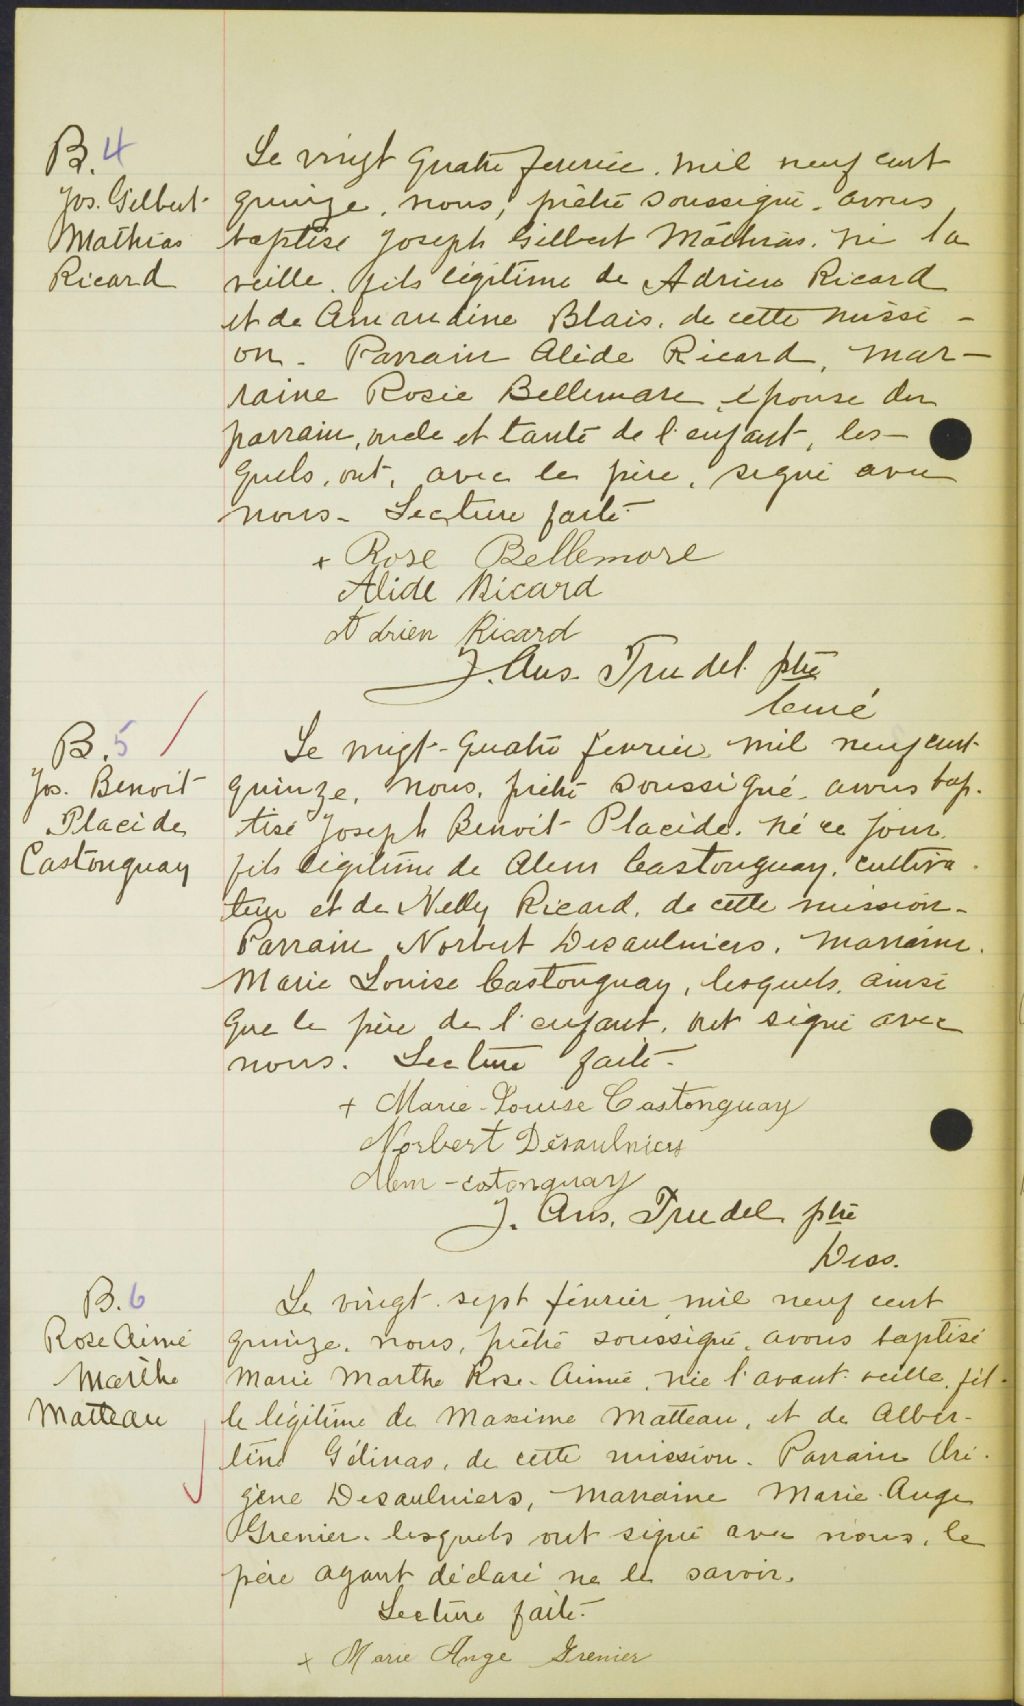 B. 4
Jos. Gilbert
Mathias
Ricard
Le vingt quatre fevrier, mil neuf cent
quinze, nous, prêtre soussigné, avons
baptisé Joseph Gilbert Mathias, né la
veille, fils légitime de Adrien Ricard
et de Amandine Blais, de cette missi -
on. Parrain Alide Ricard, mar-
raine Rosie Bellemare, épouse du
parrain, oncle et tante de l'enfant, les-
quels, ont, avec le père, signé avec
nous. Lecture faite
+ Rose Bellemare
Alide Ricard
Adrien Ricard
J. Aus. Trudel ptre
Curé
B. 5
Jos. Benoit
Placide
Castonguay
Le vingt-quatre fevrier mil neuf cent
quinze, nous, prêtre soussigné, avons bap-
tisé Joseph Benoit Placide, né ce jour,
fils légitime de Alem Castonguay, cultiva-
teur et de Nelly Ricard, de cette mission.
Parrain Norbert Desaulniers, marraine,
Marie Louise Castonguay, lesquels, ainsi
que le père de l'enfant, ont signé avec
nous. Lecture faite.
+ Marie-Louise Castonguay
Norbert Désaulniers
Alem
J. Aus. Trudel ptre
Dess.
B. 6
Rose Aimé
Marthe
Matteau
Le vingt sept février mil neuf cent
quinze, nous, prêtre soussigné, avons baptisé
Marie Marthe Rose-Aimée, née l'avant veille, fil-
le légitime de Maxime Matteau, et de Alber-
tine Gélinas, de cette mission. Parrain Ori-
gène Desaulniers, marraine Marie-Ange
Grenier, lesquels ont signé avec nous, le
père ayant déclaré ne le savoir.
Lecture faite.
+ Marie Ange Grenier